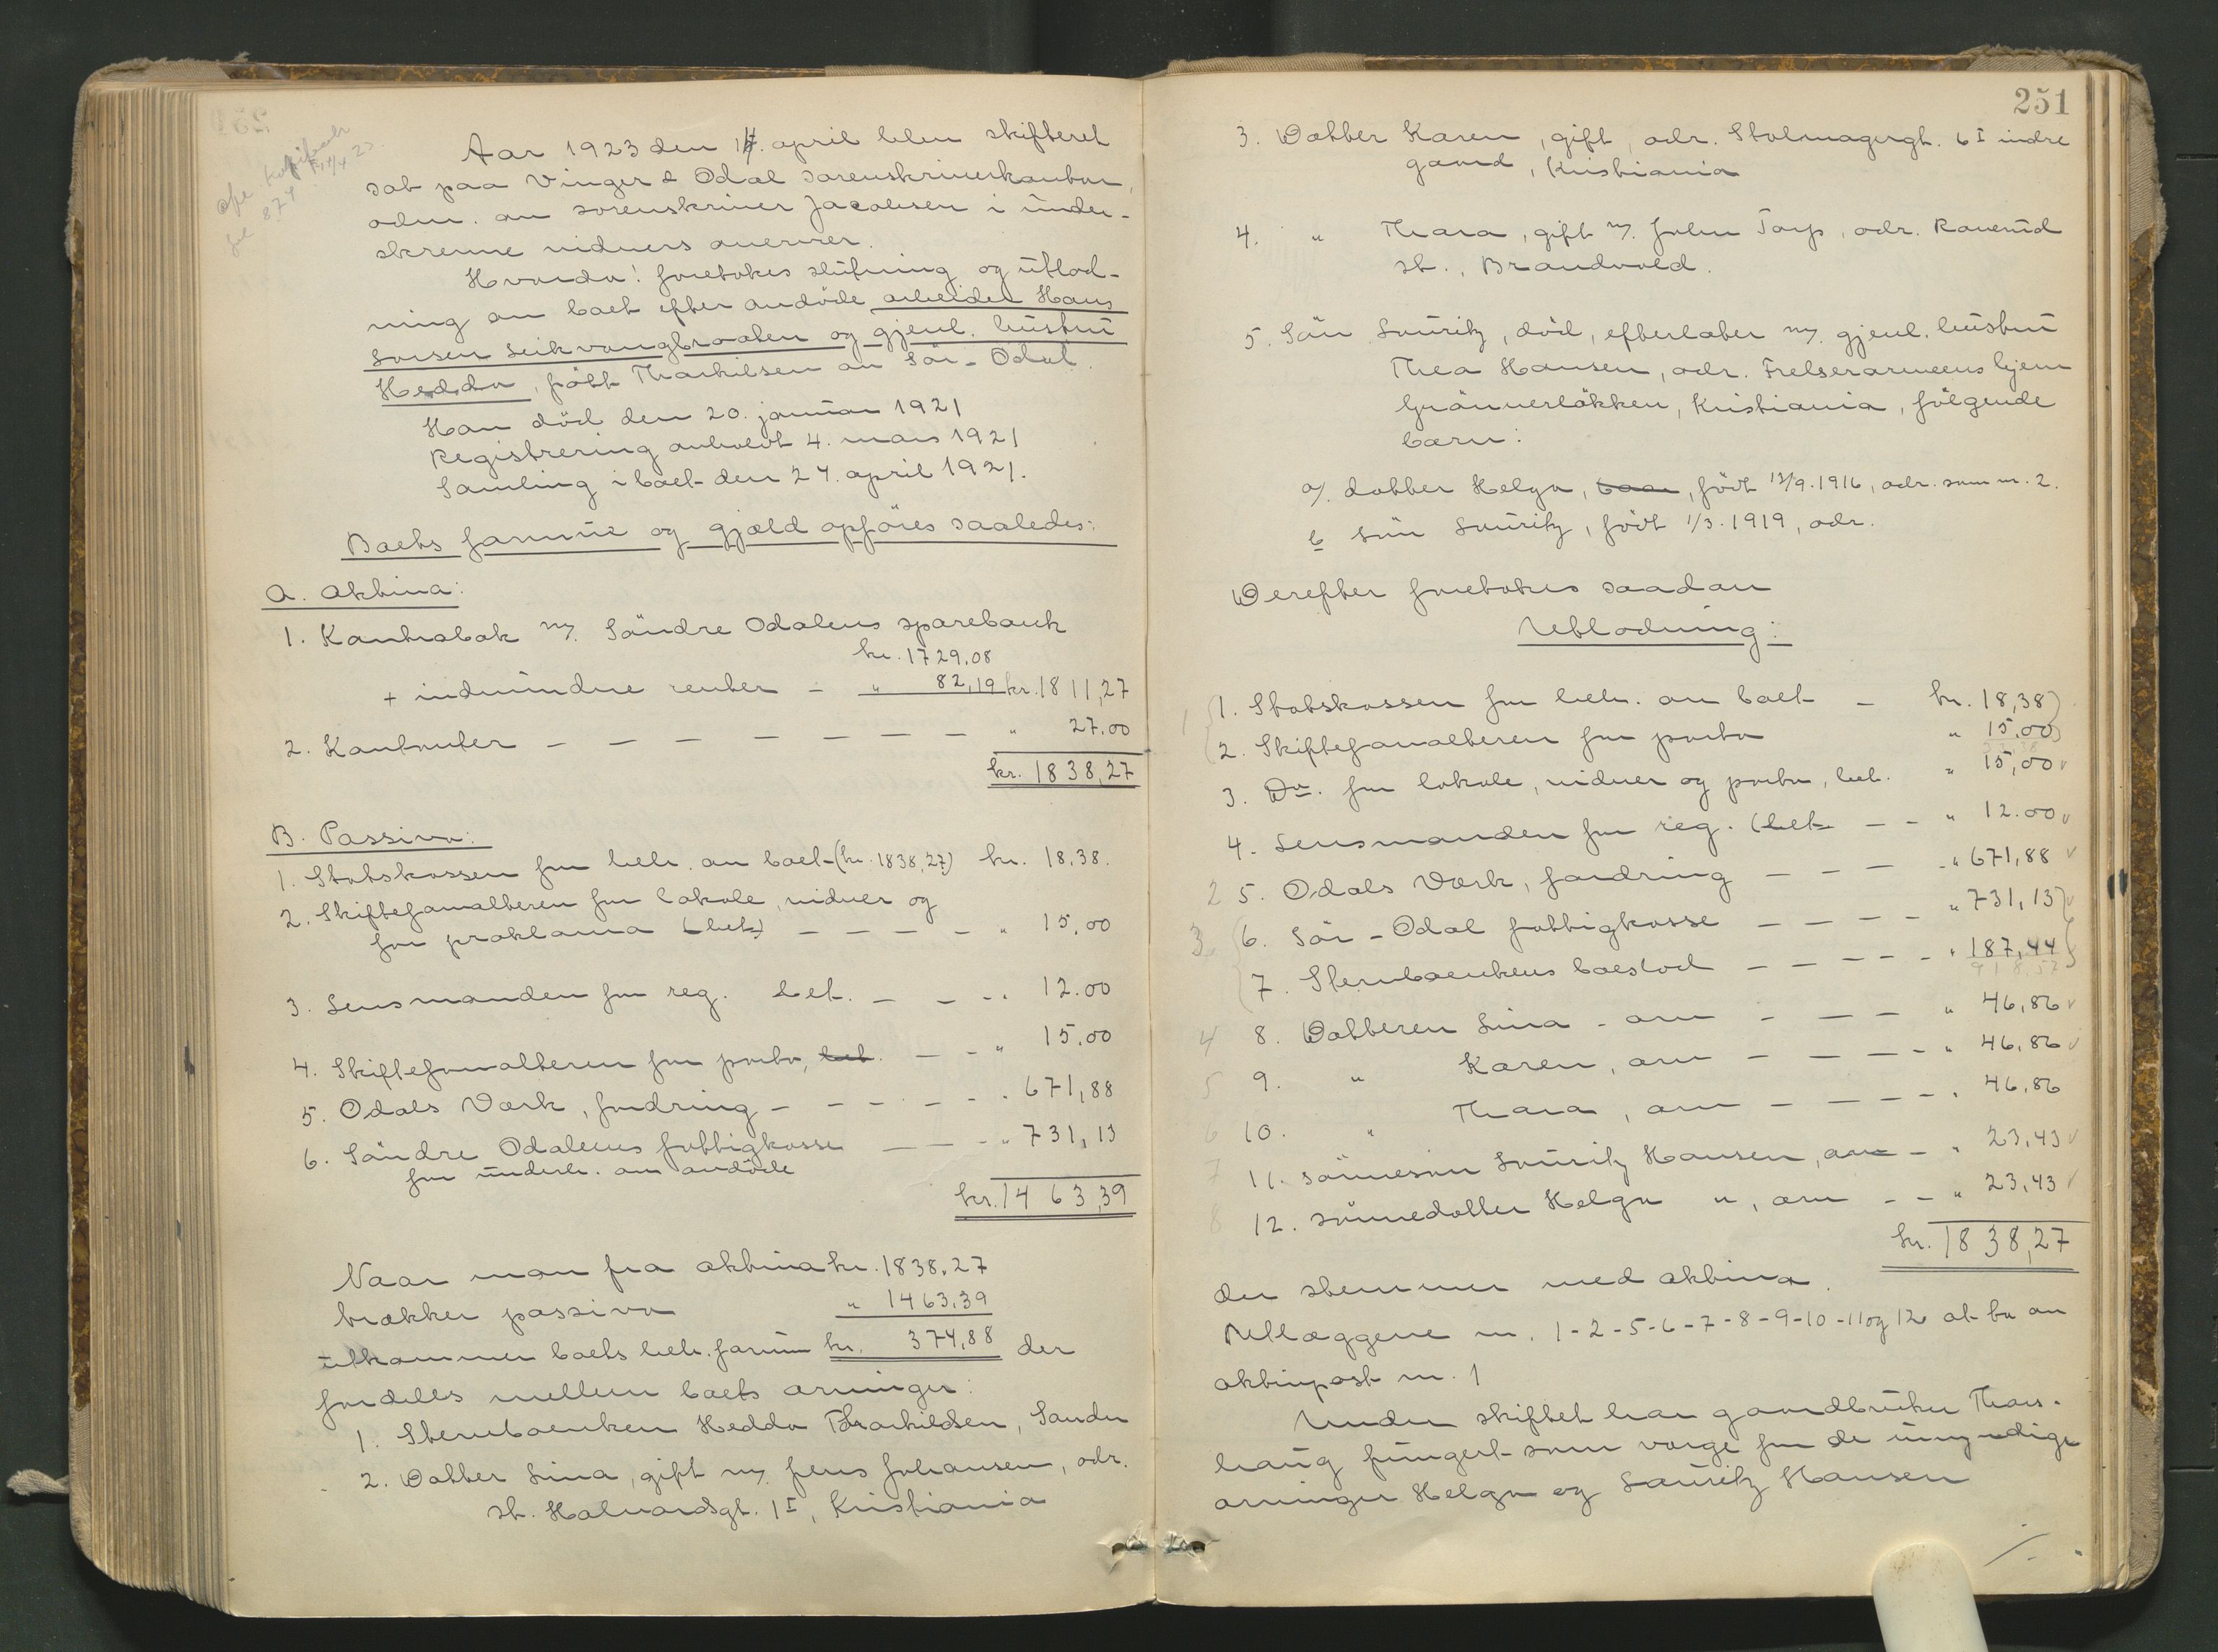 Aar 1923 den 14. april blev skifteret
sat paa Vinger & Odal sorenskriverkontor,
adm. av sorenskriver Jacobsen i under-
skrevne vidners overvær.
Hvorda! foretokes slutning og utlod-
ning av boet efter avdöde arbeider Hans
Larsen Leikvangbraaten og gjenl. hustru
Hedda, född Thorkilsen av Sör-Odal.
Han död den 20. januar 1921
Registrering avholdt 4. mars 1921
Samling i boet den 24. april 1921.
Boets formue og gjæld opföres saaledes:
A. Aktiva:
1. Kontrabok m/ Söndre Odalens sparebank
kr. 1729.08
+ indvundne renter - " 82,19 kr. 1811,27
2. Kontanter - - - - - - - - " 27.00
kr. 1838,27
B. Passiva:
1. Statskassen for beh. av boet (kr. 1838,27) kr. 18.38.
2. Skifteforvalteren for lokale, vidner og
for proklama (bet.) - - - - - " 15.00
3. Lensmanden for reg. bet. - - - " 12.00
4. Skifteforvalteren for porto, bet. - - " 15.00
5. Odals Værk, fordring - - - - - - " 671,88
6. Söndre Odalens fattigkasse - - - " 731,13
for underh. av avdöde
kr. 1463,39
Naar man fra aktiva kr. 1838.27
trækker passiva " 1463,39
utkommer boets beh. formue kr. 374,88 der
fordeles mellem boets arvinger:
1. Stervboenken Hedda Thorkildsen, Sander
2. Datter Lina, gift m/ Jens Johansen, adr.
St. Halvardsgt. 1 I, Kristiania
251
3. Datter Karen, gift, adr. Stolmagergt. 6 I indre
gaard, Kristiania
4. " Thora, gift m/. John Torp, adr. Roverud
st., Brandvold.
5. Sön Lauritz, död, efterlater m/. gjenl. hustru
Thea Hansen, adr. Frelserarmeens hjem
Grünnerlökken, Kristiania, fölgende
barn:
a/. datter Helga, födt 12/9.1916, adr. som nr. 2.
b sön Lauritz, födt 1/3.1919, adr.
Derefter foretokes saadan
Utlodning:
1 1. Statskassen for beh. av boet - kr. 18,38
2. Skifteforvalteren for porto " 15,00
3. Do. for lokale, vidner og porto, bet. " 15,00
4. Lensmanden for reg. (bet. - - " 12.00
2 5. Odals Værk, fordring - - - " 671,88
3 6. Sör-Odal fattigkasse - - - - " 731,13
7. Stervboenkens boeslod - - - - - " 187,44
918,57
4 8. Datteren Lina - arv - - - " 46,86
5 9. " Karen, arv - - - - - " 46,86
6 10. " Thora, arv - - - - - " 46,86
7 11. Sönnesön Lauritz Hansen, arv - " 23,43
8 12. Sönnedatter Helga ", arv - - " 23,43
kr. 1838,27
der stemmer med aktiva.
Utlæggene nr. 1-2-5-6-7-8-9-10-11 og 12 at ta av
aktivpost nr. 1
Under skiftet har gaardbruker Thors-
haug fungert som værge for de umyndige
arvinger Helga og Lauritz Hansen